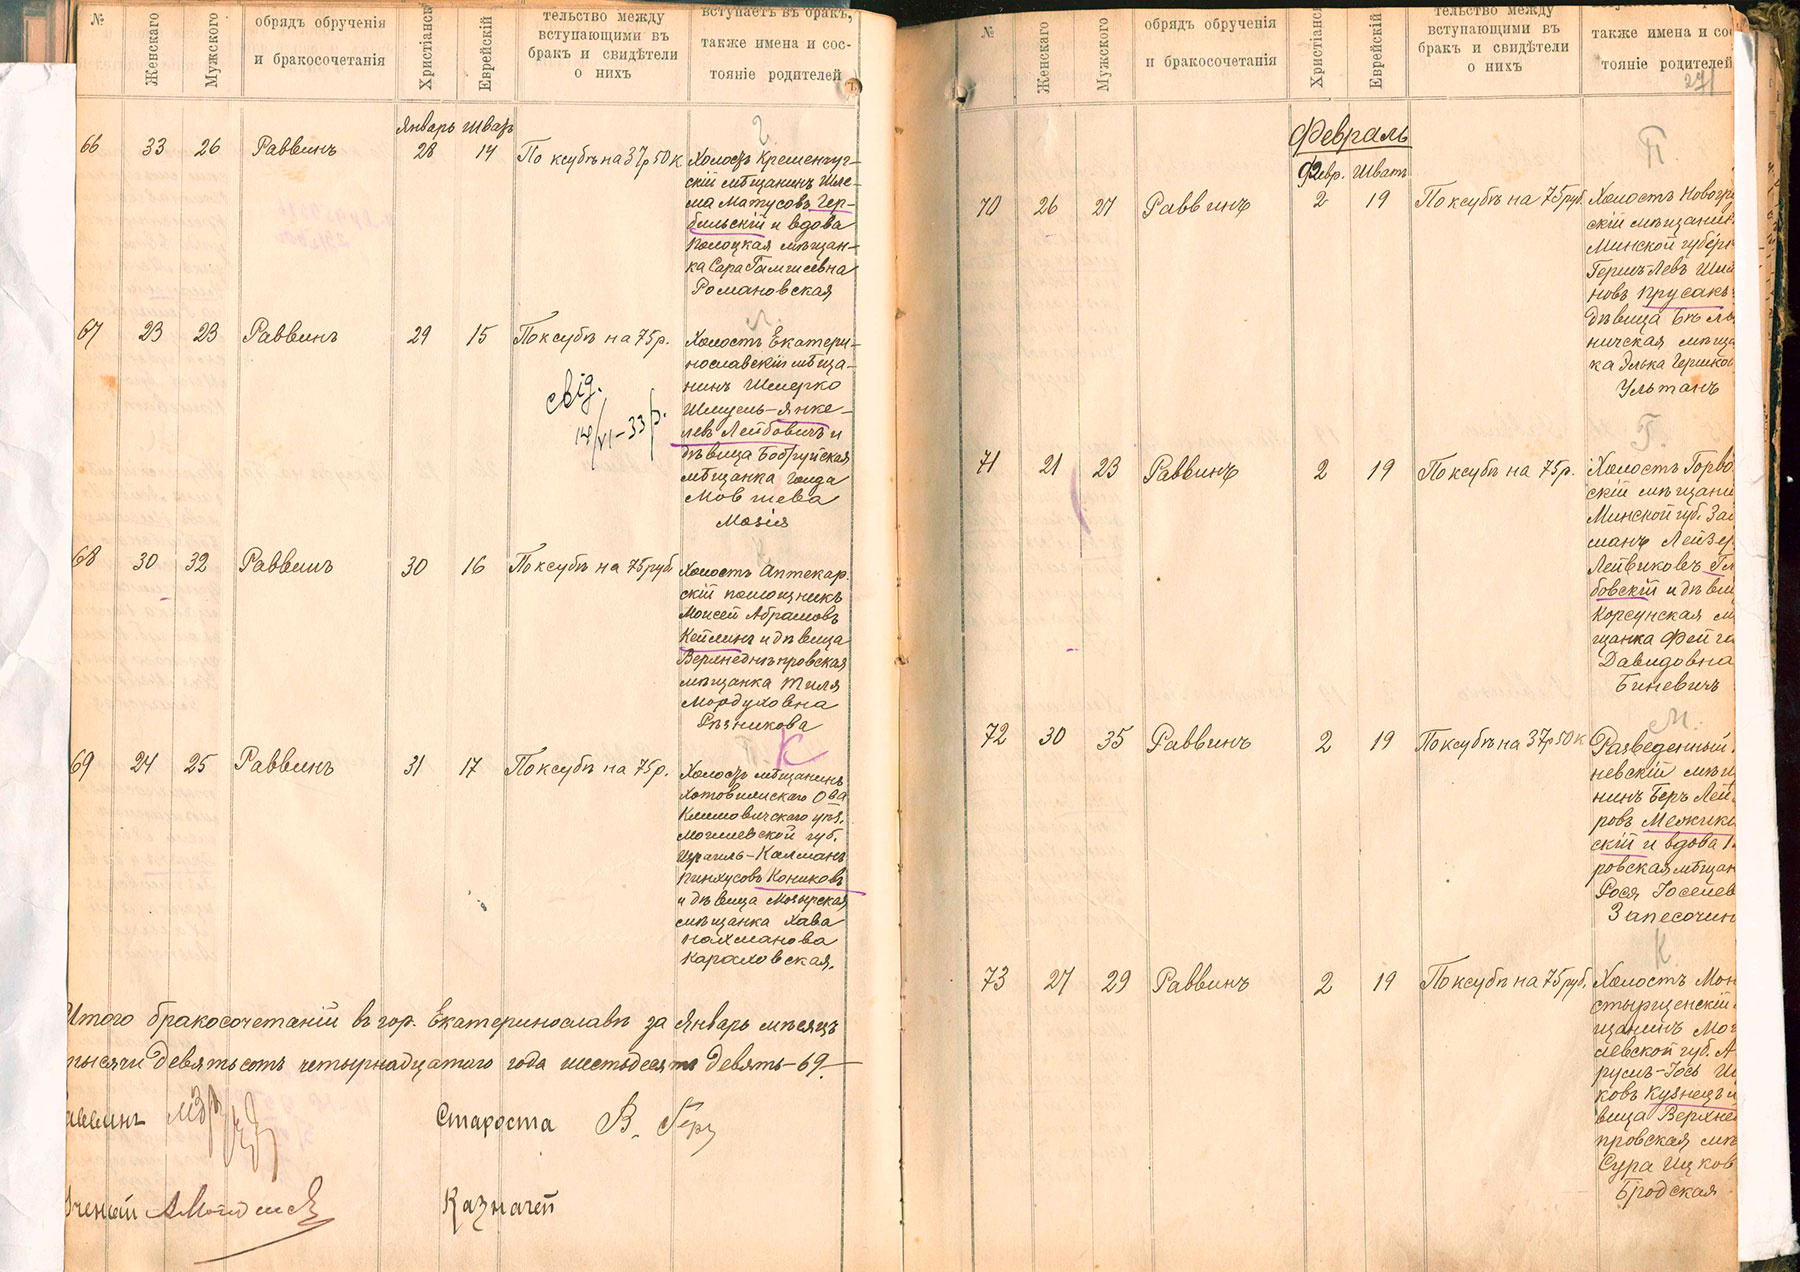 №
Женскаго
Мужского
обрядъ обрученія
и бракосочетанія
Христіанскі
Еврейскій
тельство между
вступающими въ
бракъ и свидѣтели
о нихъ
вступаетъ въ бракъ,
также имена и сос-
тояніе родителей
Январь Шватъ
66 33 26 Раввинъ 28 14 По ксубѣ на 37р 50 к
Холостъ Кременчуг-
скій мѣщанинъ Шле-
ма Матусовъ Гер-
бильскій и вдова
Полоцкая мѣщан-
ка Сара
Романовская
67 23 23 Раввинъ 29 15 По ксубѣ на 75 р.
свід.
14/VI-33 р.
Л.
Холостъ Екатери-
нославскій мѣща-
нинъ Шмерко
Шмуель-Янке-
левъ Лейбовичъ и
дѣвица Бобруйская
мѣщанка Голда
Мовшева
Мазія
68 30 32 Раввинъ 30 16 По ксубѣ на 75 руб
К
Холостъ Аптекар.
скій помощникъ
Моисей Абрамовъ
Кейлинъ и дѣвица
Верхнеднѣпровская
мѣщанка Тиля
Мордуховна
Рѣзникова
69 24 25 Раввинъ 31 17 По ксубѣ на 75 р.
К
Холостъ мѣщанинъ
Хотовижскаго Ова
Климовичскаго уѣз.
Могилевской губ.
Израиль-Калманъ
Пинхусовъ Кониковъ
и дѣвица Мозырская
мѣщанка Хава
Нахманова
Караловская.
Итого бракосочетаній въ гор. Екатеринославѣ за Январь мѣсяцъ
тысячи девятьсотъ четырнадцатаго года шестьдесятъ девять-69.
Раввинъ
Староста В. Герц
Ученый
Казначей
№
Женскаго
Мужского
обрядъ обрученія
и бракосочетанія
Христіанс
Еврейскій
тельство между
вступающими въ
бракъ и свидѣтели
о нихъ
также имена и сос
тояніе родителей
271
Февраль
Февр. Шватъ
70 26 27 Раввинъ 2 19 По ксубѣ на 75 руб.
П.
Холостъ Новогру
скій мѣщанин
Минской губерн
Гершъ Левъ Шим
новъ Прусакъ
дѣвица Бѣлы
ничская мѣща
ка Элька Гершков
Ультанъ
71 21 23 Раввинъ 2 19 По ксубѣ на 75 р.
Г.
Холостъ Горво
скій мѣщани
Минской губ. Зал
манъ Лейзер
Лейвиковъ Гл
бовскій и дѣви
Корсунская мѣ
щанка Фейга
Давидовна
Биневичъ
72 30 35 Раввинъ 2 19 По ксубѣ на 37р 50 к
М.
Разведенный
невскій мѣщ
нинъ Беръ Лей
ровъ Межики
скій и вдова
ровская мѣщан
Рося Іоселев
Запесочин
73 27 29 Раввинъ 2 19 По ксубѣ на 75 руб.
К.
Холостъ Мон
стырщенскій
щанинъ Мог
илевской губ. А
Ш
ковъ Кузнецъ и
вица Верхне
провская мѣ
Сура Ицков
Бродская